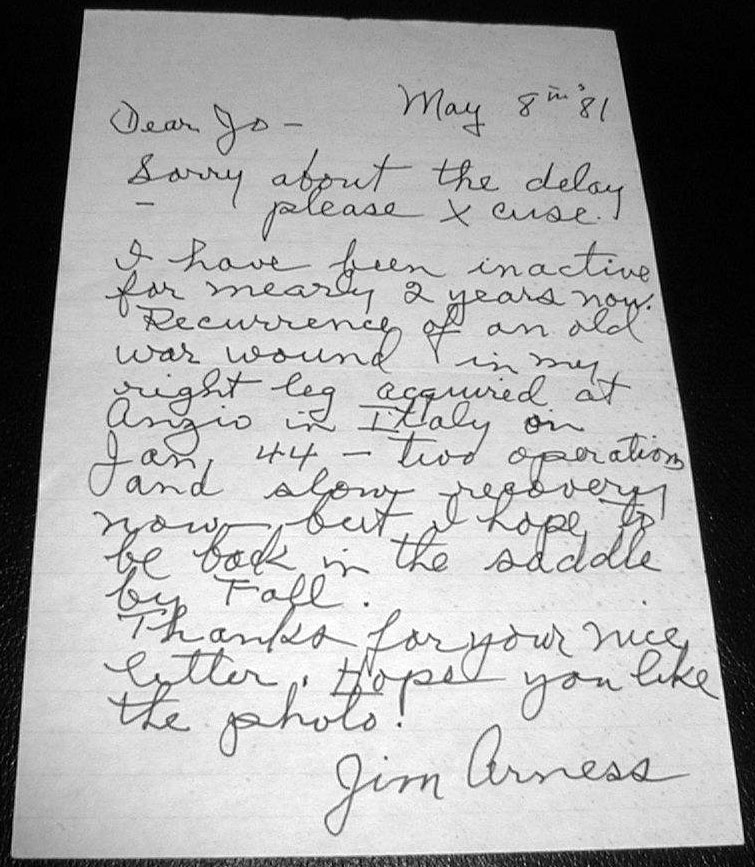 May 8th '81
Dear Jo -
Sorry about the delay
- please X cuse.
I have been inactive
for nearly 2 years now.
Recurrence of an old
war wound in my
right leg acquired at
Anzio in Italy on
Jan, 44 - two operations
and slow recovery
now, but I hope to
be back in the saddle
by Fall.
Thanks for your nice
letter. Hope you like
the photo!
Jim Arness